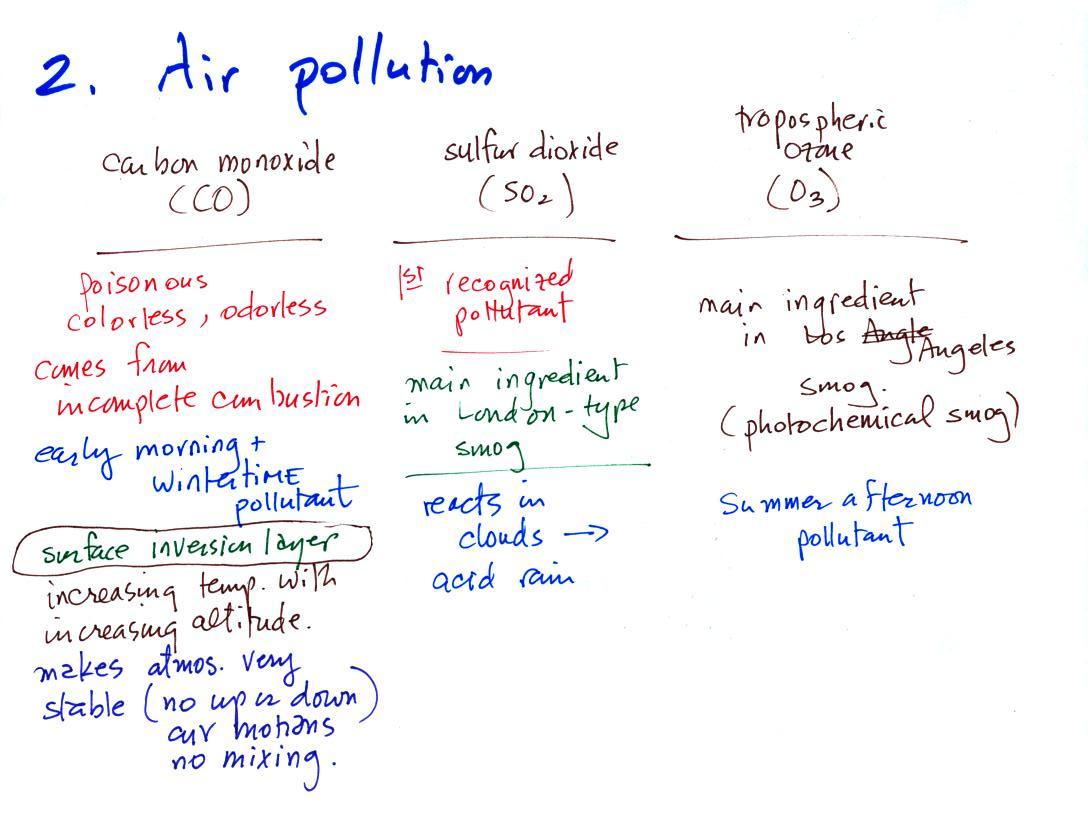 2. Air pollution
carbon monoxide
(CO)
poisonous
colorless, odorless
comes from
incomplete combustion
early morning +
WintertiME
pollutant
surface inversion layer
increasing temp. with
increasing altitude.
makes atmos. very
stable (no up or down)
air motions
no mixing.
sulfur dioxide
(SO2)
1st recognized
pollutant
main ingredient
in London-type
smog
reacts in
clouds →
acid rain
tropospheric
ozone
(O3)
main ingredient
in Los Angle Angeles
smog.
(photochemical smog)
Summer afternoon
pollutant